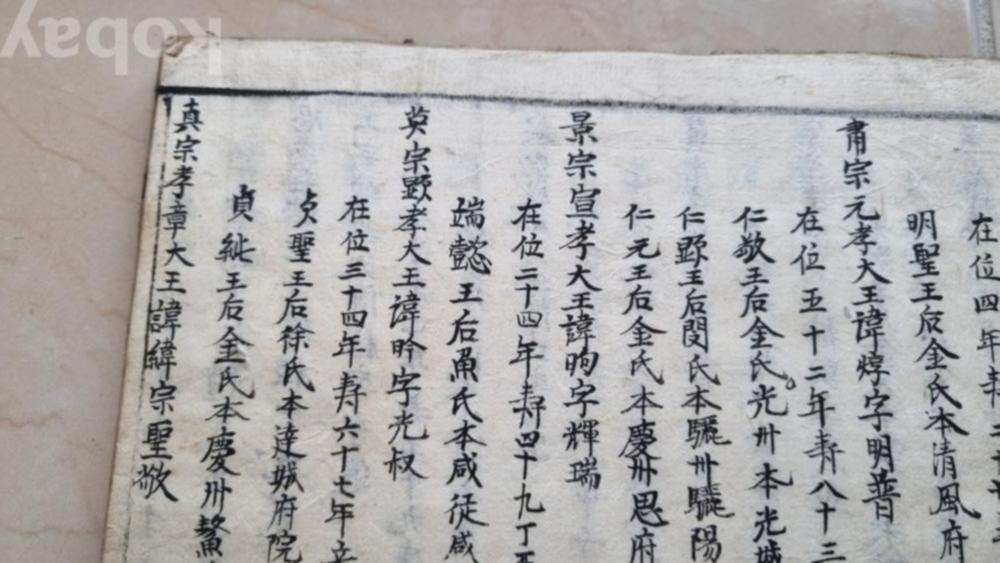 在位四年壽二十
明聖王后金氏本清風府
肅宗元孝大王諱焞字明普
在位五十二年壽八十三
仁敬王后金氏光卅本光城
仁顯王后閔氏本驪卅驪陽
仁元王后金氏本慶卅恩府
景宗宣孝大王諱昫字輝瑞
在位二十四年壽四十九丁
端懿王后魚氏本咸従咸
英宗顯孝大王諱昑字光叔
在位三十四年壽六十七年
貞聖王后徐氏本達城府院
貞純王后金氏本慶卅鰲
真宗孝章大王諱緯宗聖敬
kobay